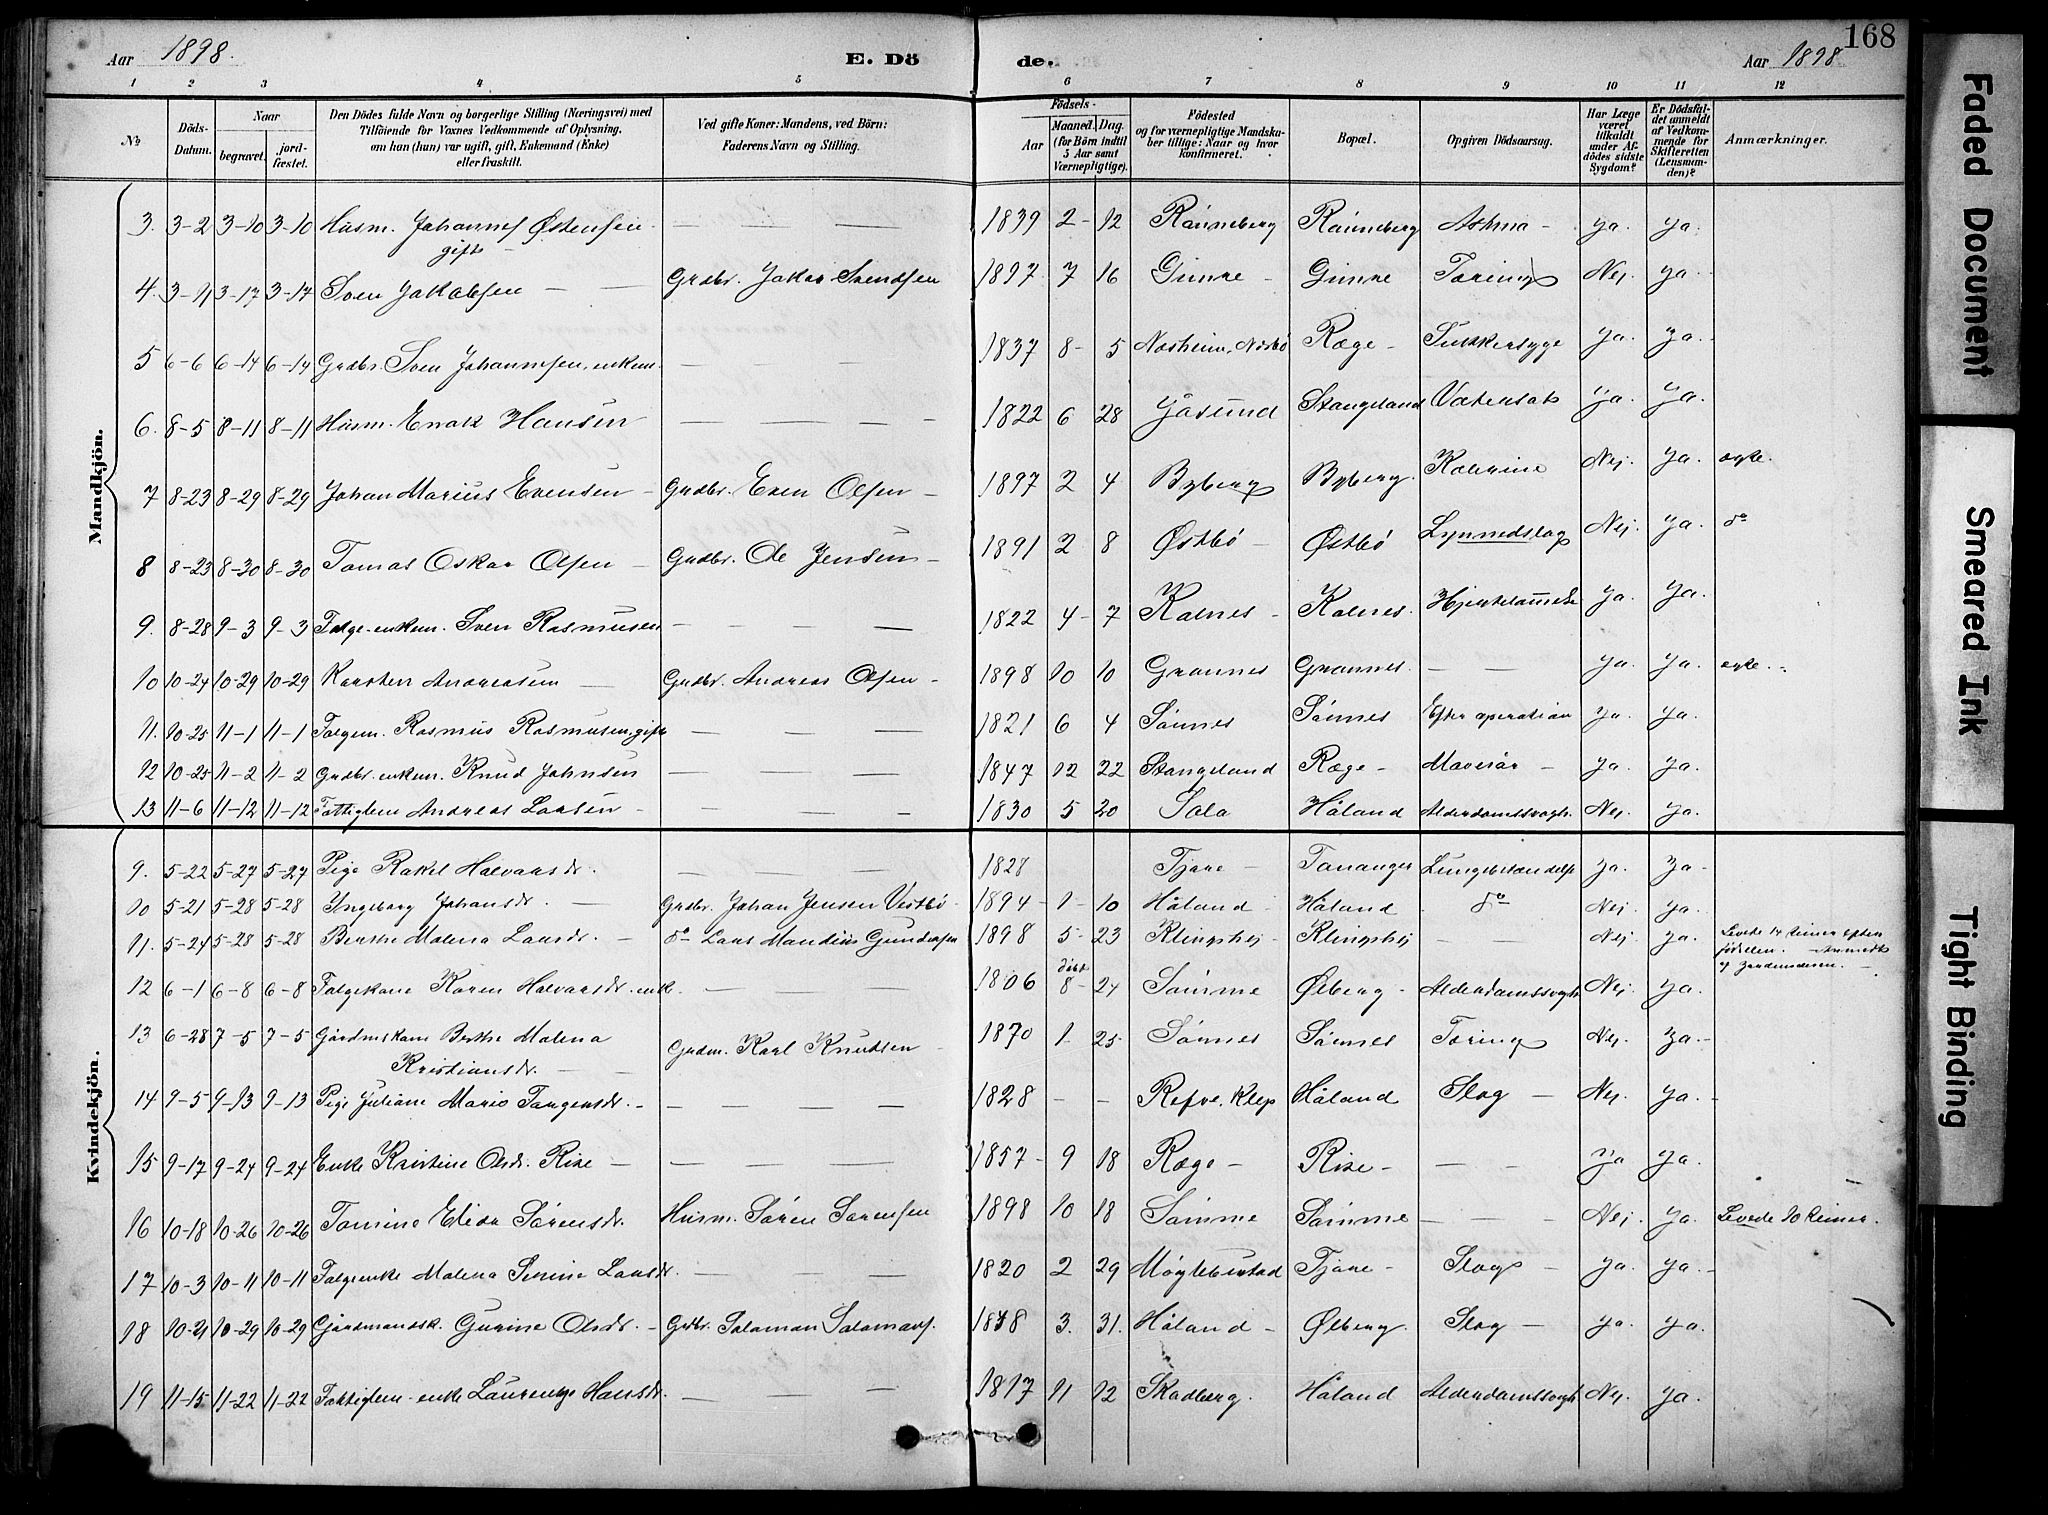 Aar 1898. E. Dö
de. Aar 1898 168
1 2 3 4 5 6 7 8 9 10 11 12
No
Döds-Datum.
Naar
begravet. jordfæstet.
Den Dödes fulde Navn og borgerlige Stilling (Næringsvei) med
Tilföiende for Voxnes Vedkommende af Oplysning,
om han (hun) var ugift, gift, Enkemand (Enke)
eller fraskilt.
Ved gifte Koner: Mandens, ved Börn:
Faderens Navn og Stilling.
Födsels-
Aar Maaned. Dag.
(for Börn indtil
5 Aar samt
Værnepligtige).
Födested
og for værnepligtige Mandska-
ber tillige: Naar og hvor
konfirmeret.
Bopæl.
Opgiven Dödsaarsag.
Har Læge
været
tilkaldt
under Af-
dödes sidste
Sygdom?
Er Dödsfal-
det anmeldt
af Vedkom-
mende for
Skifteretten
(Lensman-
den)?
Anmærkninger.
Mandkjön.
3. 3-2 3-10 3-10 Husm. Johannes Østensen gift — — — 1839 2- 12 Rånneberg Rånneberg Asthma - ja. ja.
4. 3-11 3-17 3-17 Sven Jakobsen — — Grdbr. Jakob Svendsen 1897 7 16 Gimre - Gimre Tæring Nej ja.
5 6-6 6-14 6-14 Grdbr. Sven Johannesen, enkem. — — — 1837 8- 5 Næsheim, Næsbø Ræge - Sukkersyge ja. ja.
6. 8-5 8-11 8-11 Husm. Enok Hansen — — — 1822 6 28 Jåsund Stangeland Vatersot ja. ja.
7 8-23 8-29 8-29 Johan Marius Evensen - Grdbr. Even Olsen - 1897 2 4 Byberg Byberg. Kolerine Nej. ja. ægte.
8 8-23 8-30 8-30 Tomas Oskar Olsen - Grdbr. Ole Jensen - 1891 2 8 Østbø - Østbø Lynnedslag Nej. ja. do
9. 8-28 9-3 9-3 Folge-enkem. Sven Rasmusen — — — 1822 4- 7 Kolnes - Kolnes. Hjertelammelse ja. ja.
10 10-24 10-29 10-29 Karsten Andreasen — Grdbr. Andreas Olsen - 1898 10 10 Grannes Grannes. — — ja. ja. ægte.
11. 10-25 11-1 11-1 Folgem. Rasmus Rasmusen, gift — — — 1821 6 4 Sønnes Sønnes Efter operation ja. ja.
12 10-25 11-2 11-2 Grdbr. enkem. Knud Johnsen — — — 1847 12 22 Stangeland Ræge - Mavesår - ja. ja.
13 11-6 11-12 11-12 Fattiglem Andreas Larsen - - - - 1830 5 20 Sola Håland Alderdomssvagh. Nej. ja.
Kvindekjön.
9. 5-22 5-27 5-27 Pige Rakel Halvorsdr. — — — 1828 Tjore - Tananger Lungebetændelse ja. ja -
10 5-21 5-28 5-28 Ingeborg Johansdr. - Grdbr. Johan Jensen Vestbø - 1894 - 1 - 10 Håland - Håland do Nej. ja.
11. 5-24 5-28 5-28 Berthe Malena Larsdr. - do Lars Mandius Gundersen 1898 5- 23 Klingshej - Klingshej — — Nej. ja. Levede 14 timer efter
fødselen. - Anmeldt
af Jordemoderen. -
12 6-1 6-8 6-8 Folgekone Karen Halvorsdr. enke — — 1806 døbt 8- 24 Sømme Ølberg - Alderdomssvagh. Nej. ja.
13 6-28 7-5 7-5 Gårdmskone Berthe Malena
Kristiansdr. — Grdm. Karl Knutsen - 1870 1- 25 Sønnes Sønnes Tæring Nej. ja. -
14 9-5 9-13 9-13 Pige Juliane Marie Torgersdr. - — — — 1828 - - Refve. Klep Håland Slag - Nej. ja. -
15 9-17 9-24 9-24 Enke Kristine Olsdr. Rise - — — — 1857 - 9 18 Ræge - Rise - — — ja ja.
16 10-18 10-26 10-26 Tomine Elida Sørensdr. Husm. Søren Sørensen 1898 10 18 Sømme Sømme — — Nej. ja. Levede 10 timer.
17 10-3 10-11 10-11 Folgeenke Malena Serine Larsdr. — — — 1820 2 29 Møgleburstad Tjore - Slag - ja. ja. -
18 10-21 10-29 10-29 Gårdmandsk. Gurine Olsdr. - Grdbr. Salamon Salamons. 1878 3. 31. Håland - Ølberg. Slag - ja. ja.
19 11-15 11-22 11-22 Fattiglem - enke Laurentze Hansdr. - — — 1817 11 12 Skadberg. Håland Alderdomssvagh. Nej. ja.
Faded Document
Smeared Ink
Tight Binding